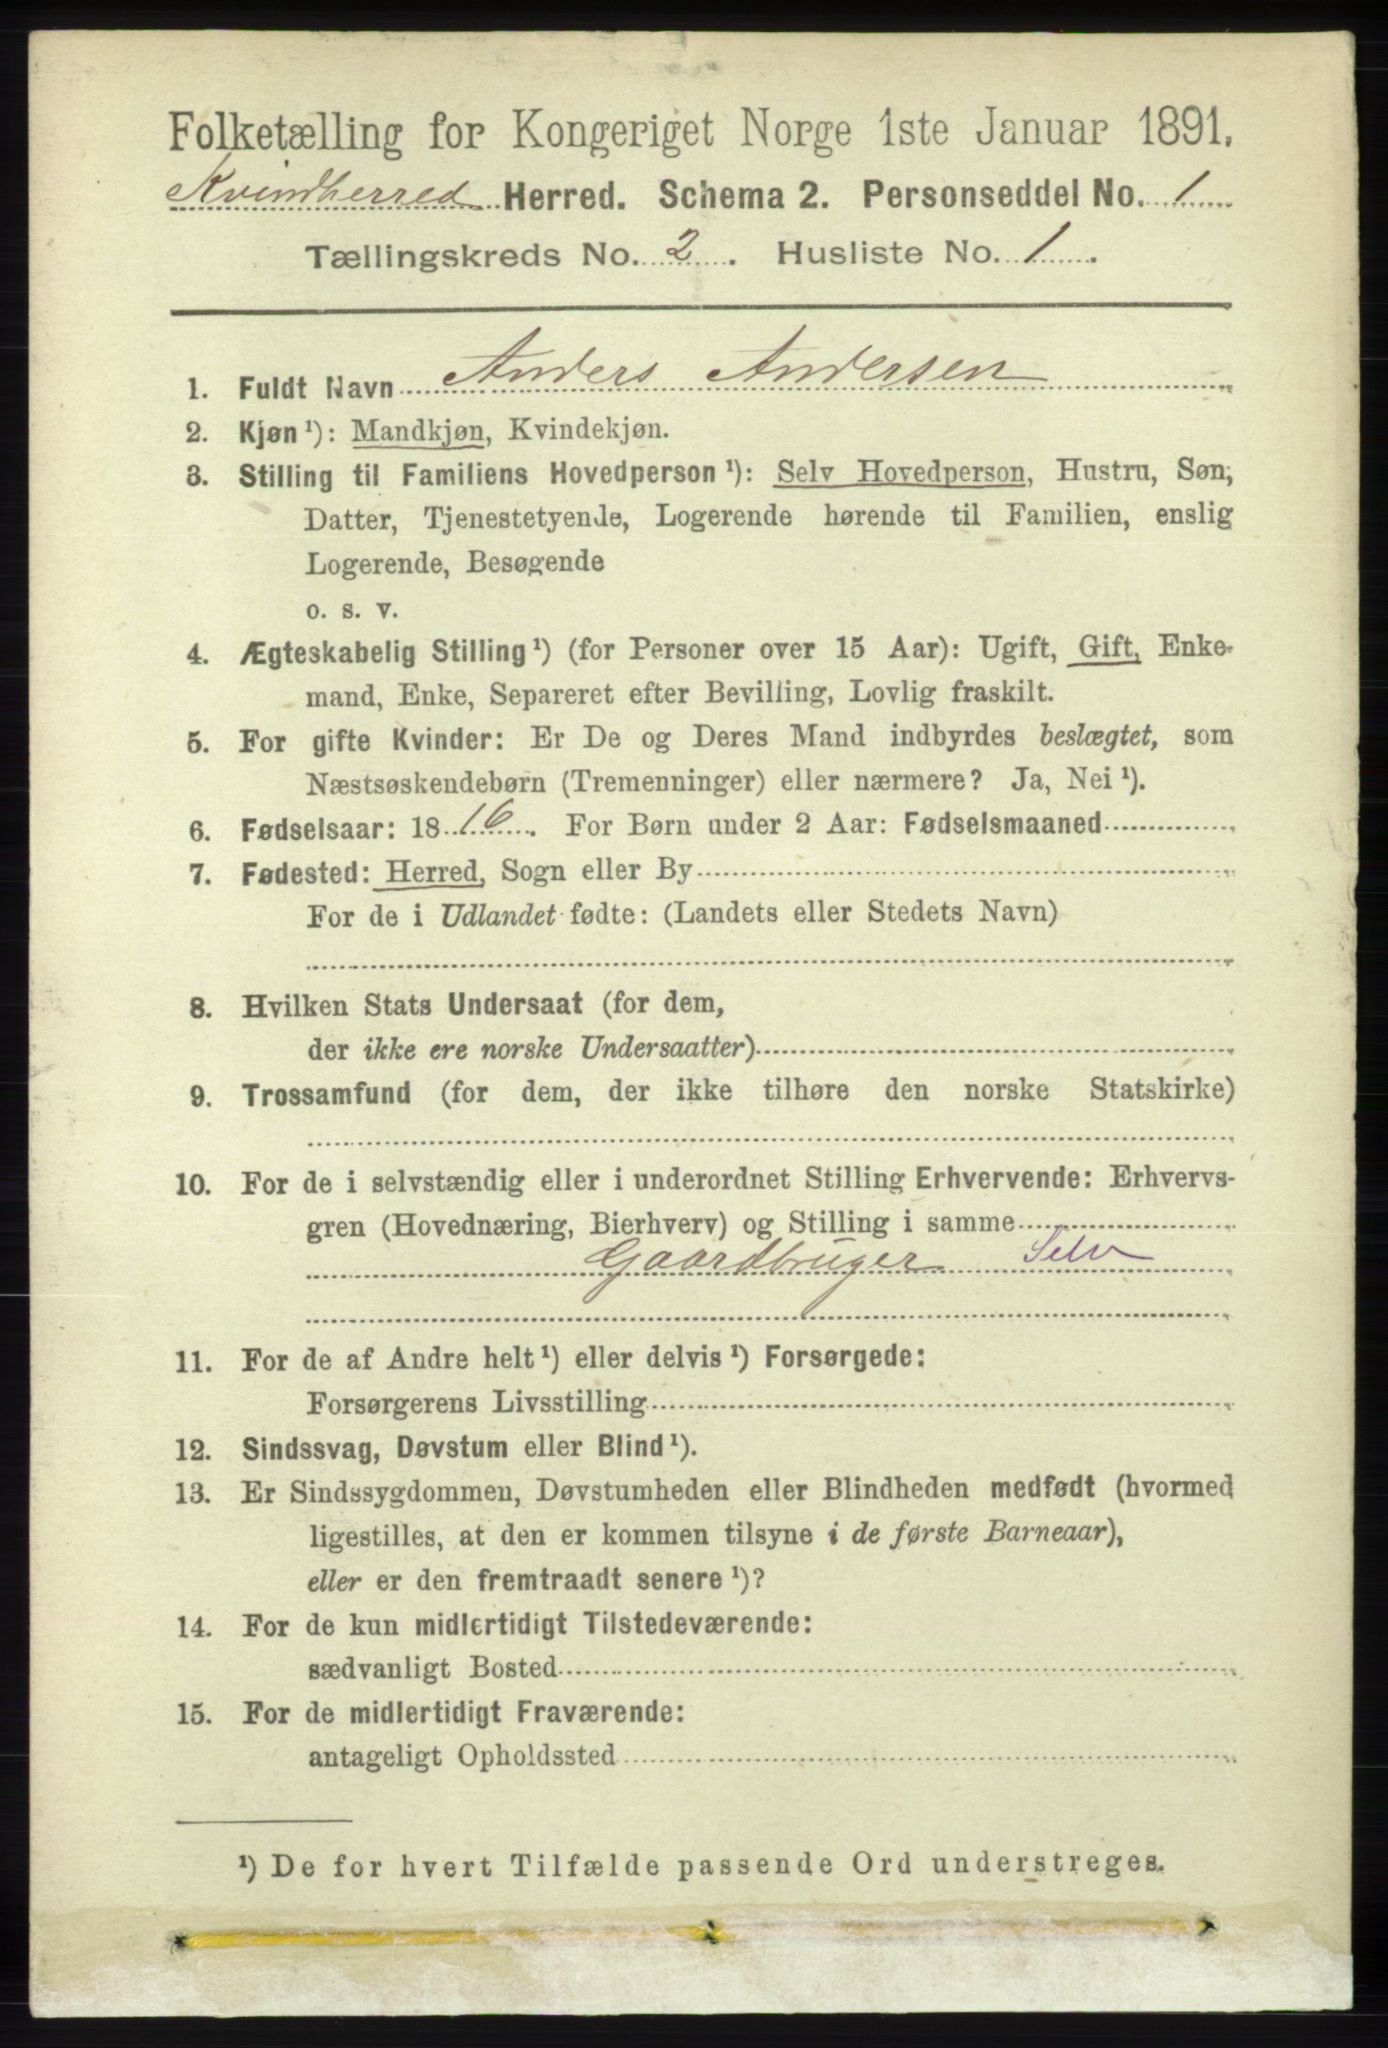 Folketælling for Kongeriget Norge 1ste Januar 1891.
Kvindherred Herred. Schema 2. Personseddel No. 1
Tællingskreds No. 2. Husliste No. 1.
1. Fuldt Navn Anders Andersen
2. Kjøn¹): Mandkjøn, Kvindekjøn.
3. Stilling til Familiens Hovedperson¹): Selv Hovedperson, Hustru, Søn,
Datter, Tjenestetyende, Logerende hørende til Familien, enslig
Logerende, Besøgende
o. s. v.
4. Ægteskabelig Stilling¹) (for Personer over 15 Aar): Ugift, Gift, Enke-
mand, Enke, Separeret efter Bevilling, Lovlig fraskilt.
5. For gifte Kvinder: Er De og Deres Mand indbyrdes beslægtet, som
Næstsøskendebørn (Tremenninger) eller nærmere? Ja, Nei¹).
6. Fødselsaar: 1816. For Børn under 2 Aar: Fødselsmaaned
7. Fødested: Herred, Sogn eller By
For de i Udlandet fødte: (Landets eller Stedets Navn)
8. Hvilken Stats Undersaat (for dem,
der ikke ere norske Undersaatter)
9. Trossamfund (for dem, der ikke tilhøre den norske Statskirke)
10. For de i selvstændig eller i underordnet Stilling Erhvervende: Erhvervs-
gren (Hovednæring, Bierhverv) og Stilling i samme
Gaardbruger Selv
11. For de af Andre helt¹) eller delvis¹) Forsørgede:
Forsørgerens Livsstilling
12. Sindssvag, Døvstum eller Blind¹).
13. Er Sindssygdommen, Døvstumheden eller Blindheden medfødt (hvormed
ligestilles, at den er kommen tilsyne i de første Barneaar),
eller er den fremtraadt senere¹)?
14. For de kun midlertidigt Tilstedeværende:
sædvanligt Bosted
15. For de midlertidigt Fraværende:
antageligt Opholdssted
¹) De for hvert Tilfælde passende Ord understreges.